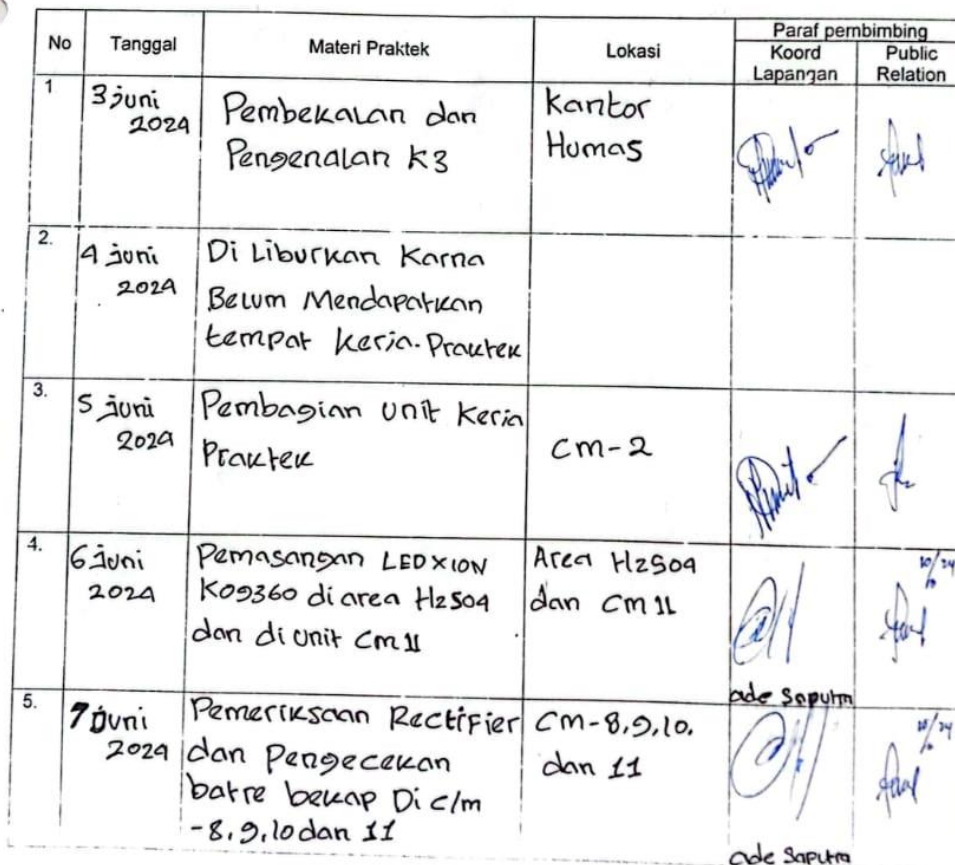 No Tanggal Materi Praktek Lokasi Paraf pembimbing
Koord Lapangan Public Relation
1 3 juni 2024 Pembekalan dan Pengenalan K3 Kantor Humas
2. 4 juni 2024 Di Liburkan Karna Belum Mendapatkan tempat Kerja-Praktek
3. 5 juni 2024 Pembagian Unit Kerja Praktek CM-2
4. 6 juni 2024 Pemasangan LED XION K09360 di area H2SO4 dan di unit CM 11 Area H2SO4 dan CM 11
ade Saputra
5. 7 juni 2024 Pemeriksaan Rectifier dan Pengecekan batre bekap Di c/m -8,9,10 dan 11 CM-8,9,10. dan 11
ade Saputra